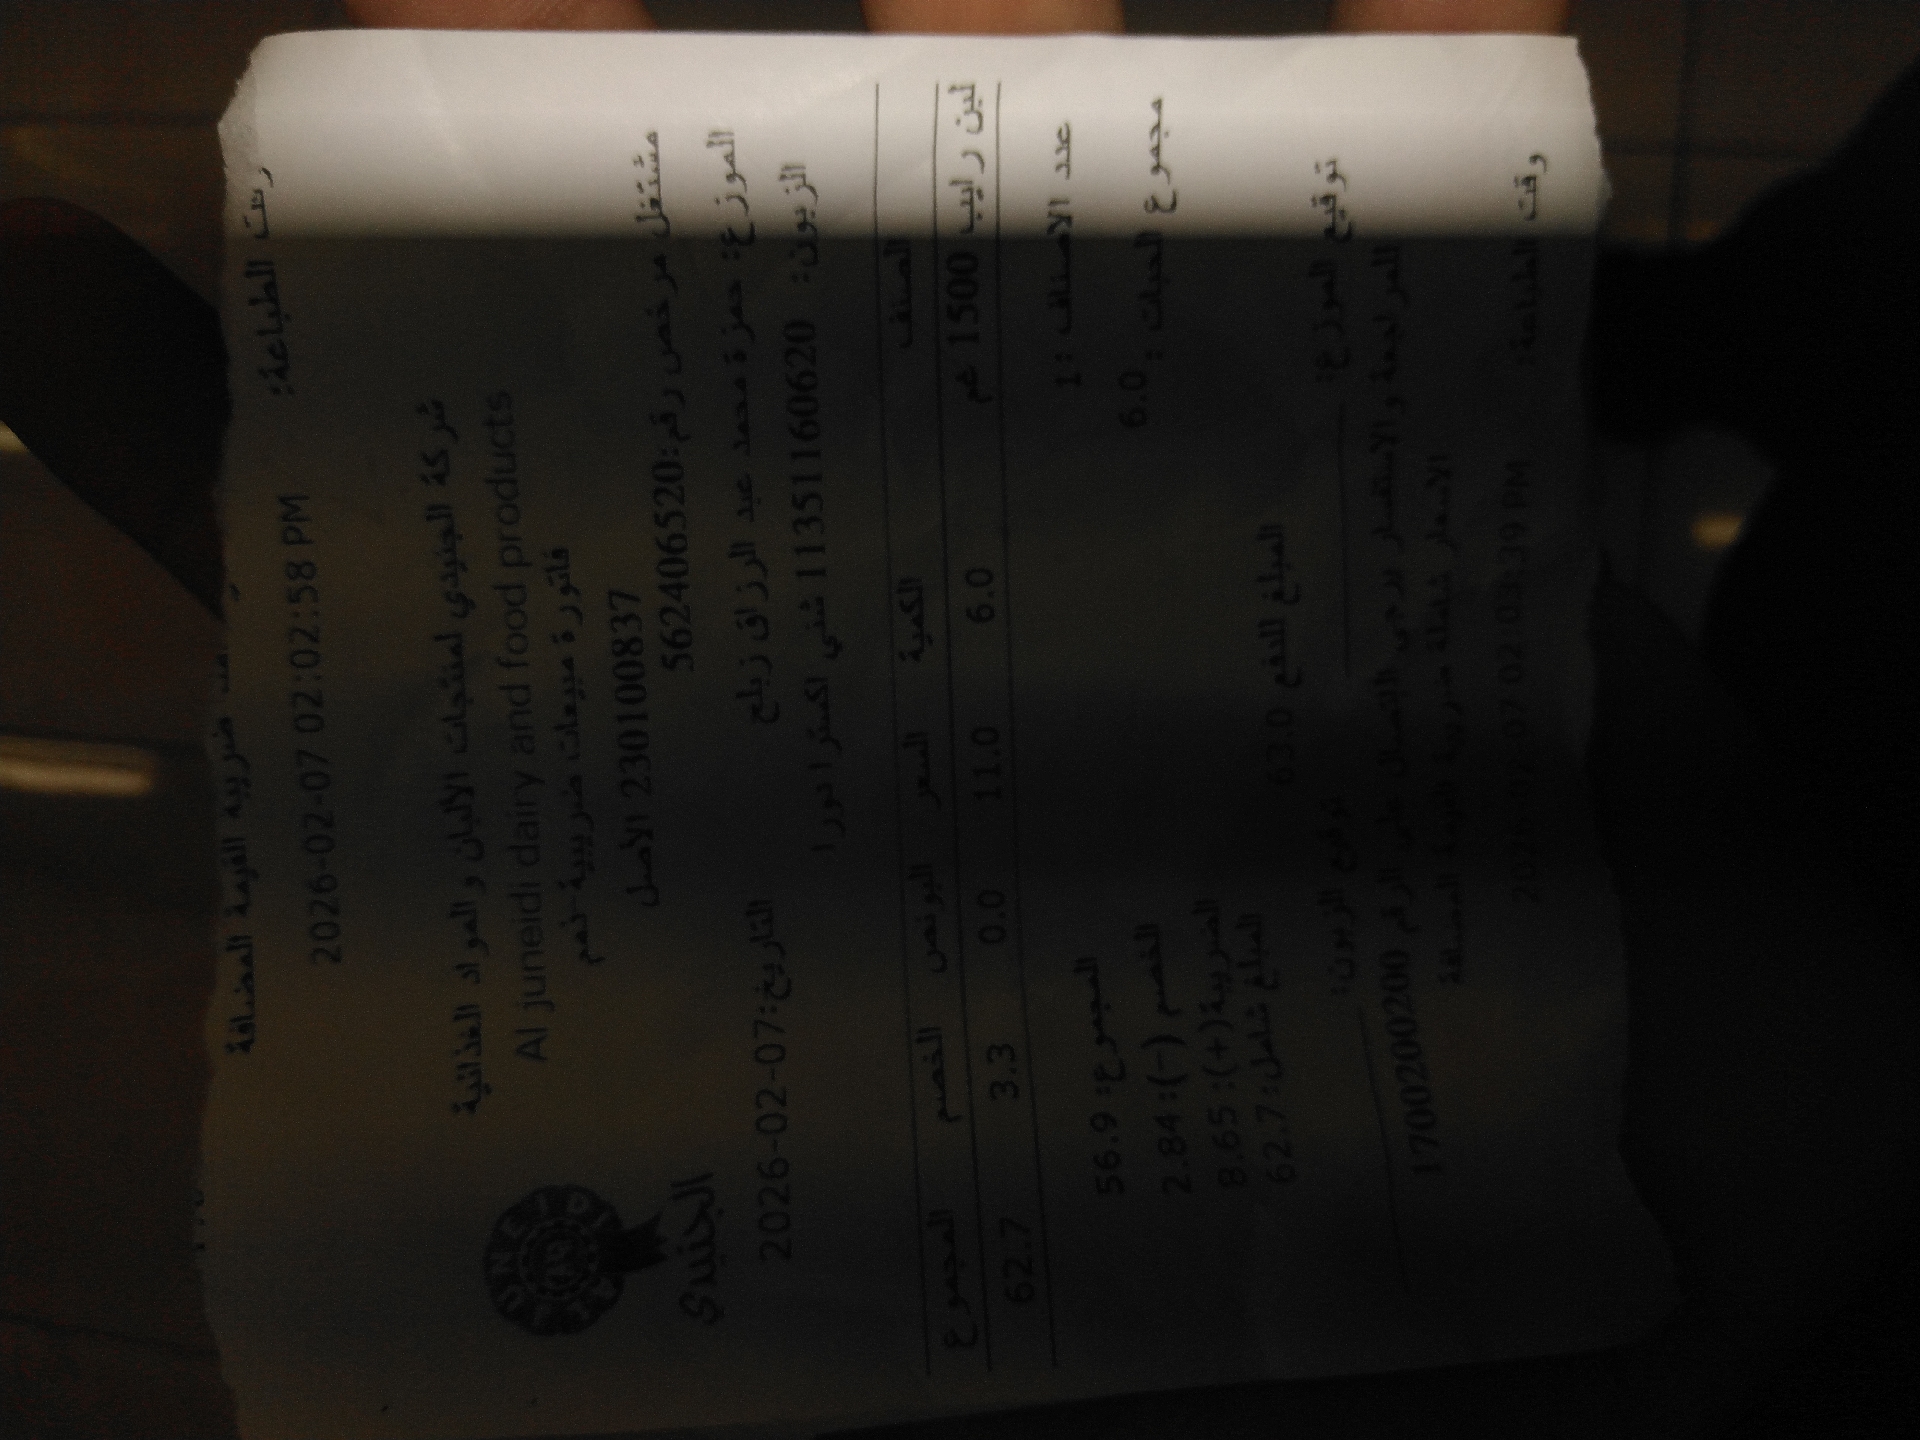 ضريبه القيمة المضافة
وقت الطباعة: 2026-02-07 02:02:58 PM
شركة الجنيدي لمنتجات الالبان و المواد الغذائية
Al juneidi dairy and food products
فاتورة مبيعات ضريبية-نعم
230100837 الاصل
مشتغل مرخص رقم:562406520
JUNEIDI
الجنيدي
الموزع: حمزة محمد عبد الرزاق زبلح التاريخ:2026-02-07
الزبون: 11351160620 شني اكسترا دورا
الصنف الكمية السعر البونص الخصم المجموع
لبن رايب 1500 غم 6.0 11.0 0.0 3.3 62.7
عدد الاصناف :1 المجموع: 56.9
مجموع الحبات : 6.0 الخصم (-): 2.84
الضريبة(+): 8.65
المبلغ شامل: 62.7
المبلغ للدفع 63.0
توقيع الموزع: توقيع الزبون:
للمراجعة والاستفسار يرجى الاتصال على الرقم 1700200200
الاسعار شاملة ضريبة القيمة المضافة
وقت الطباعة: 2026-02-07 02:03:39 PM